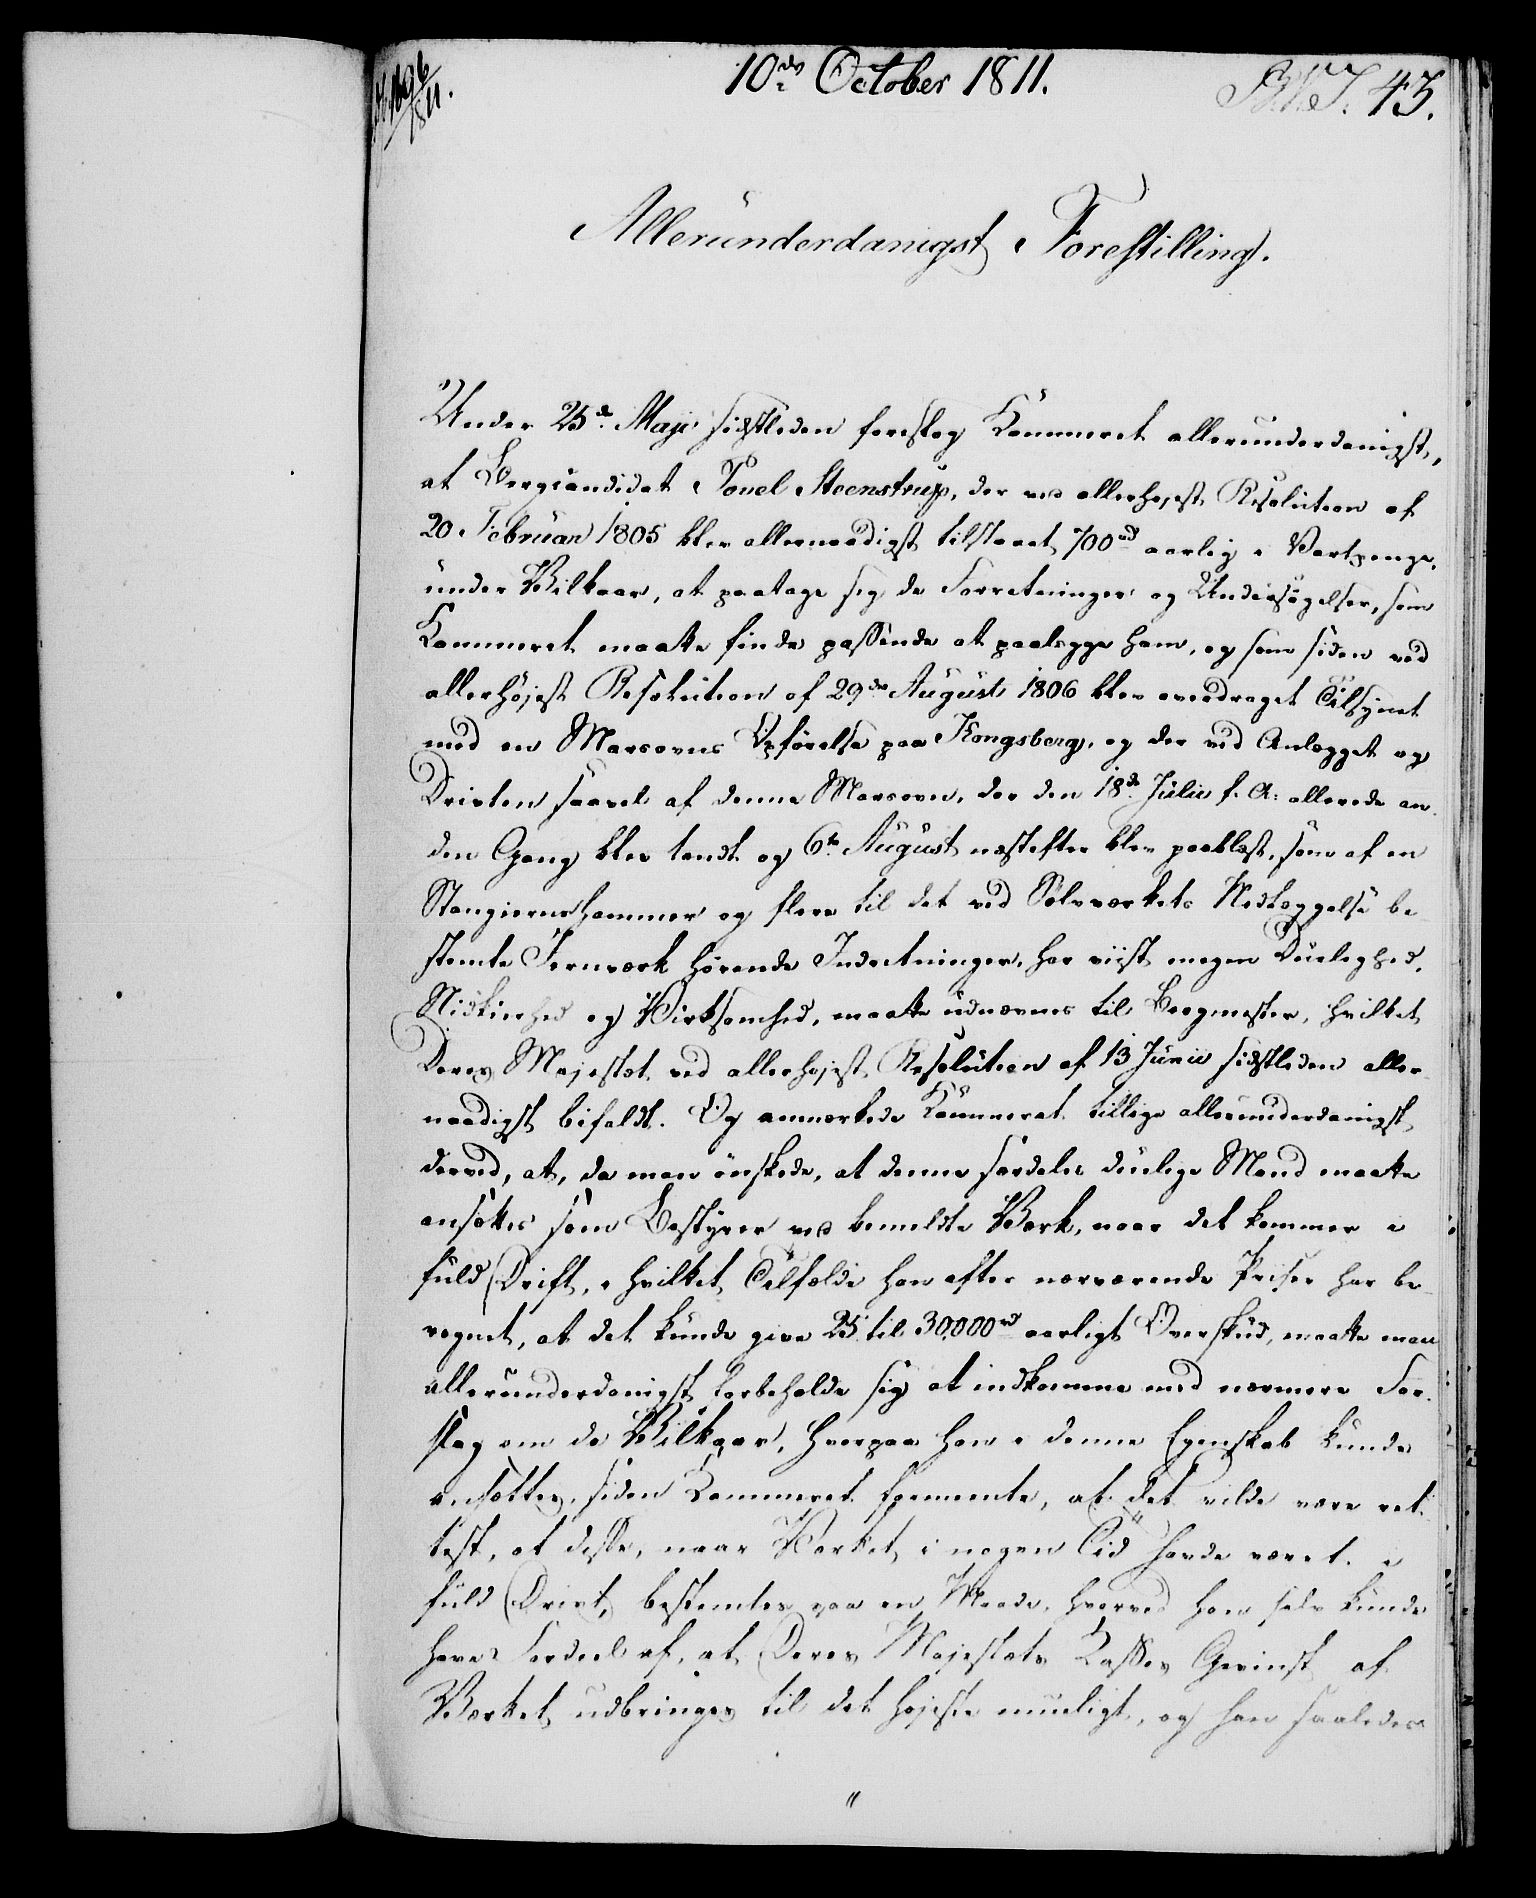 1696/1811.
10de October 1811.
43.
Allerunderdanigst Forestilling.
Under 25de Maji sidstleden foreslog Kammeret allerunderdanigst,
at Bergcandidat Povel Steenstrup, der ved allerhøjest Resolution af
20 Februar 1805 blev allernaadigst tilstaaet 700 rd aarlig i Vartpenge,
under Vilkaar, at paatage sig de Forretninger og Undersøgelser, som
Kammeret maatte finde passende at paalægge ham, og som siden ved
allerhøjest Resolution af 29de August 1806 blev overdraget Tilsynet
med en Masovns Opførelse paa Kongsberg, og der ved Anlægget og
Driften saavel af denne Masovn, der den 18de Julii f. A. allerede an-
den Gang blev tændt og 6te August næstefter blev paablæst, som af en
Stangjernshammer og flere til det ved Sølvværkets Nedlæggelse be-
stemte Jernværk hørende Indretninger, har viist megen Duelighed,
Nidkierhed og Virksomhed, maatte udnævnes til Bergmester, hvilket
Deres Majestæt ved allerhøjest Resolution af 13 Junii sidstleden aller-
naadigst bifaldt. Og anmærkede Kammeret tillige allerunderdanigst
derved, at, da man ønskede, at denne særdeles duelige Mand maatte
ansættes som Bestyrer ved bemeldte Værk, naar det kommer i
fuld Drift, i hvilket Tilfælde han efter nærværende Priser har be-
regnet, at det kunde give 25 til 30,000 rd aarligt Overskud, maatte man
allerunderdanigst forbeholde sig at indkomme med nærmere For-
slag om de Vilkaar, hvorpaa han i denne Egenskab kunde
ansættes, siden Kammeret formeente, at det vilde være ret-
test, at disse, naar Værket i nogen Tid havde været i
fuld Drivt, bestemtes paa en Maade, hvorved han selv kunde
have Fordeel af, at Deres Majestæts Kasses Gevinst af
Værket udbringes til det højeste mueligt, og han saaledes